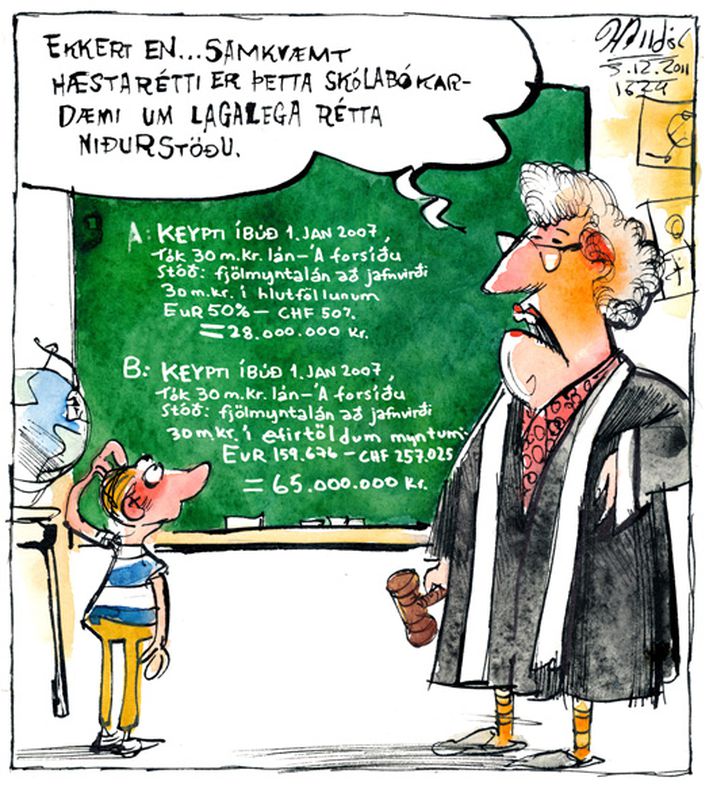 EKKERT EN...SAMKVÆMT
HÆSTARÉTTI ER ÞETTA SKÓLABÓKAR-
DÆMI UM LAGALEGA RÉTTA
NIÐURSTÖÐU.
5.12.2011
1624
A: KEYPTI ÍBÚÐ 1. JAN 2007,
Tók 30 m.kr. lán-Á forsíðu
Stóð: fjölmyntalán að jafnvirði
30 m.kr. í hlutföllunum
EUR 50% - CHF 507.
= 28.000.000 Kr.
B: KEYPTI ÍBÚÐ 1. JAN 2007,
Tók 30 m.kr. lán-Á forsíðu
Stóð: fjölmyntalán að jafnvirði
30 m kr. í efirtöldum myntum:
EUR 159.676 - CHF 257.025
= 65.000.000 Kr.